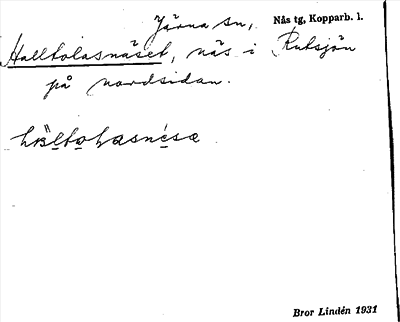 Järna sn, Nås tg, Kopparb. l.
Halltolasnäset, näs i Rutsjön
på nordsidan.
Bror Lindén 1931